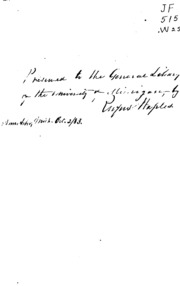 JF
515
.W25
Presented to the General Library
of the University of Michigan, by
Rufus Waples
Ann Arbor, Mich. Oct.